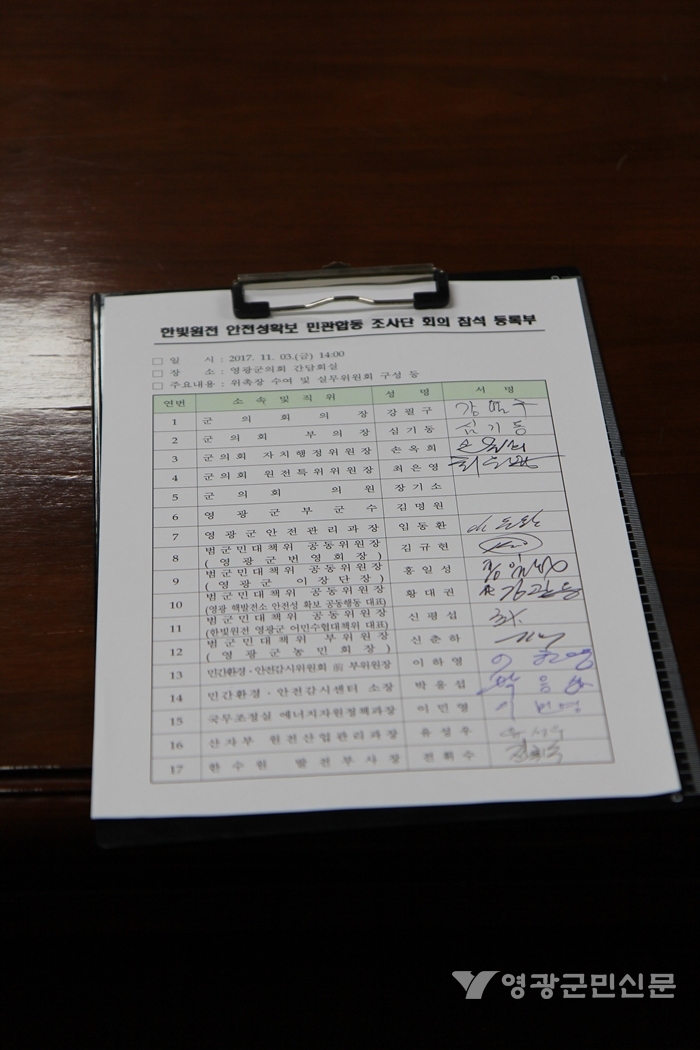 한빛원전 안전성확보 민관합동 조사단 회의 참석 등록부
□ 일 시 : 2017. 11. 03.(금) 14:00
□ 장 소 : 영광군의회 간담회실
□ 주요내용 : 위촉장 수여 및 실무위원회 구성 등
연번 소속및직위 성 명 서 명
1 군 의 회 의 장 강필구 강필구
2 군 의 회 부 의 장 심기동 심기동
3 군의회 자치행정위원장 손옥희
4 군의회 원전특위위원장 최은영
5 군 의 회 의 원 장기소
6 영 광 군 부 군 수 김명원
7 영광군안전관리과장 임동환
8 범군민대책위 공동위원장 김규현
( 영 광 군 번 영 회 장 )
9 범군민대책위 공동위원장 홍일성
( 영 광 군 이 장 단 장 )
10 범군민대책위 공동위원장 황대권
(영광 핵발전소 안전성 확보 공동행동 대표)
11 범군민대책위 공동위원장 신평섭
(한빛원전 영광군 어민수협대책위 대표)
12 범군민대책위 부위원장 신춘하
( 영 광 군 농 민 회 장 )
13 민간환경·안전감시위원회 前 부위원장 이하영 이하영
14 민간환경·안전감시센터 소장 박응섭 박응섭
15 국무조정실 에너지자원정책과장 이민영
16 산자부 원전산업관리과장 유성우
17 한수원 발전부사장 전휘수
영광군민신문